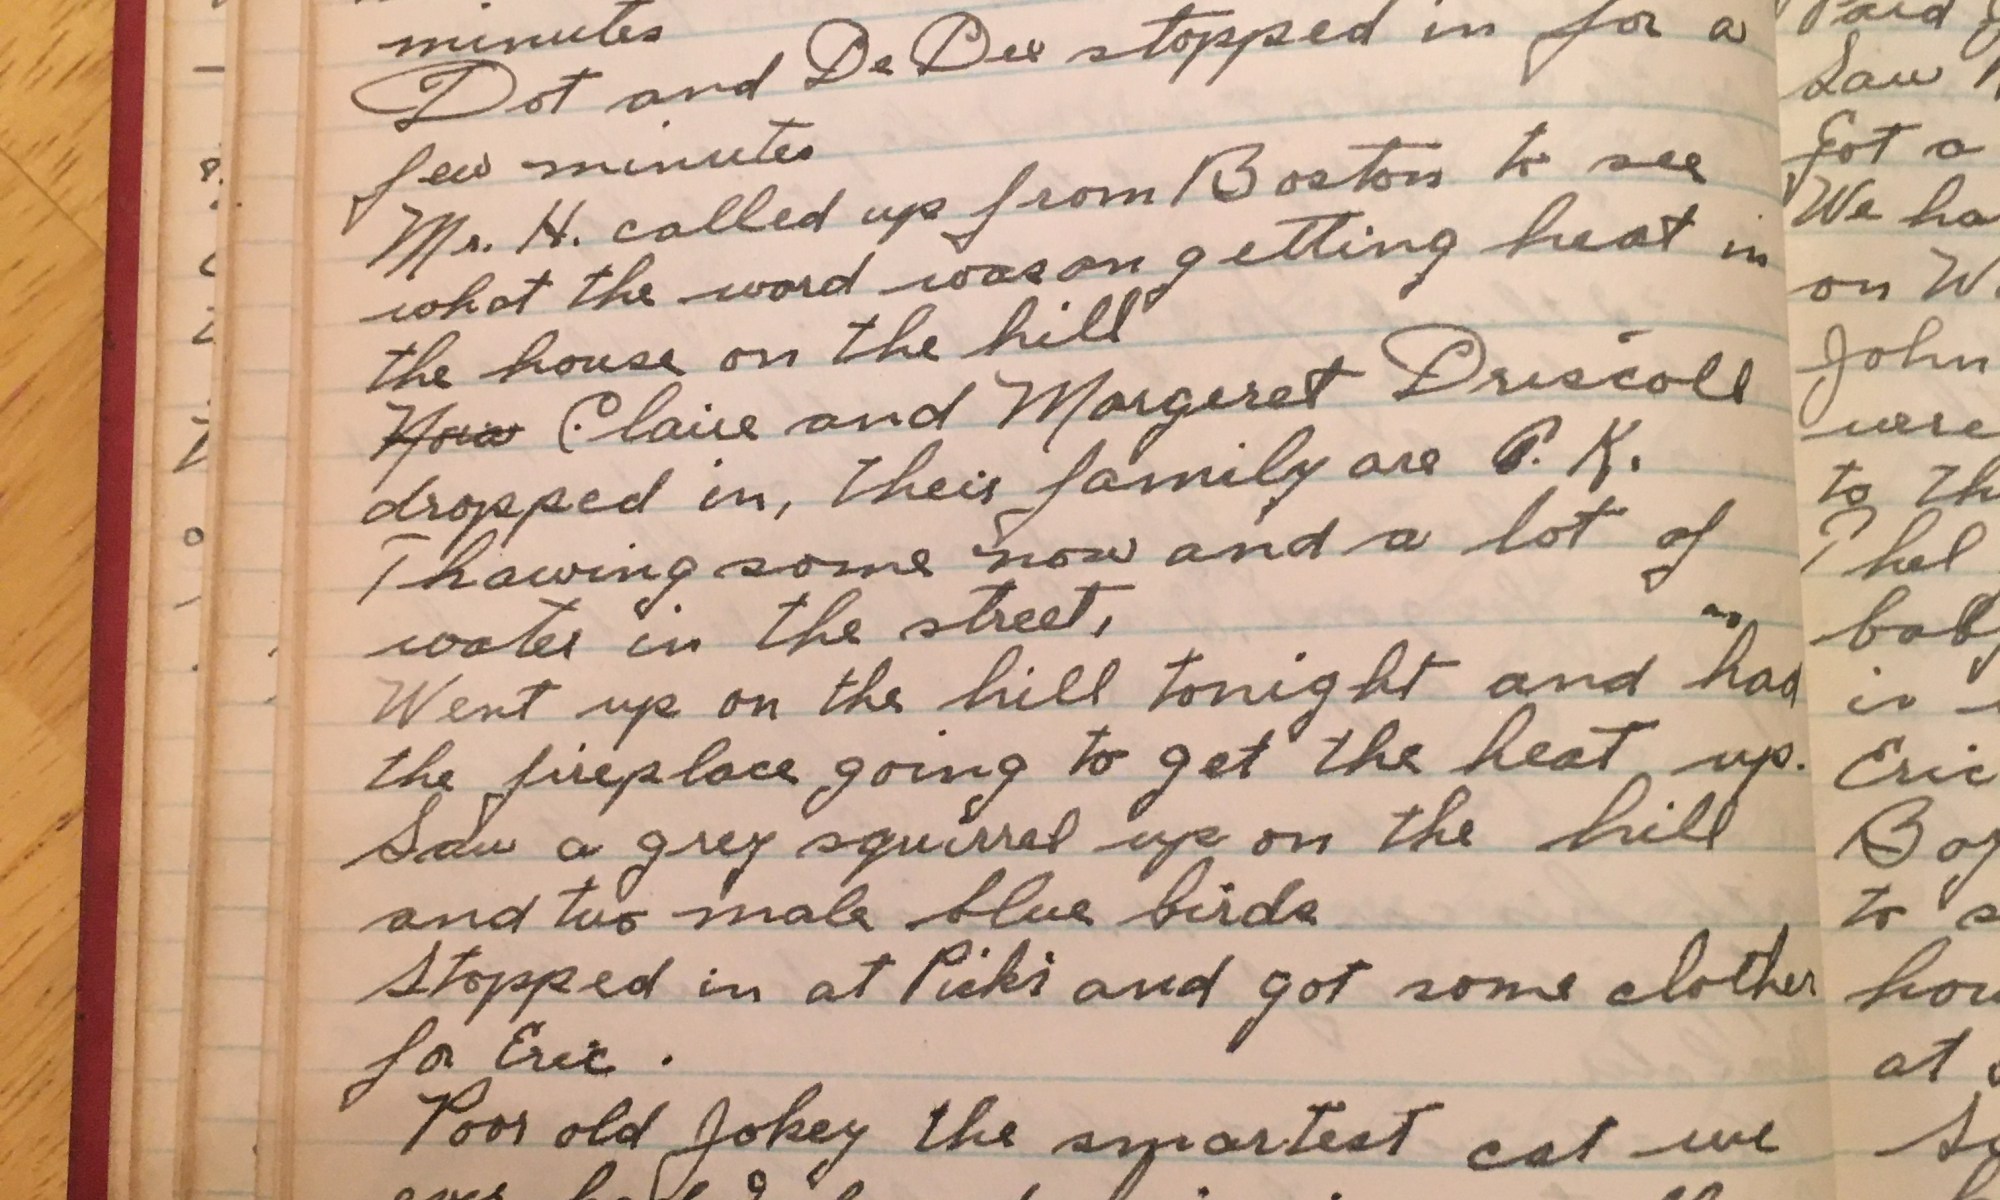 minutes
Dot and DeDee stopped in for a
few minutes
Mr. H. called up from Boston to see
what the word was on getting heat in
the house on the hill
Now Claire and Margeret Driscoll
dropped in, their family are P. K.
Thawing some now and a lot of
water in the street,
Went up on the hill tonight and had
the fireplace going to get the heat up.
Saw a grey squirrel up on the hill
and two male blue birds
Stopped in at Picks and got some clothes
for Eric.
Poor old Jokey the smartest cat we
Paid
Saw
Got a
We ha
on W.
John
were
to th
Thel
baby
is
Eric
Bog
to s
hou
at